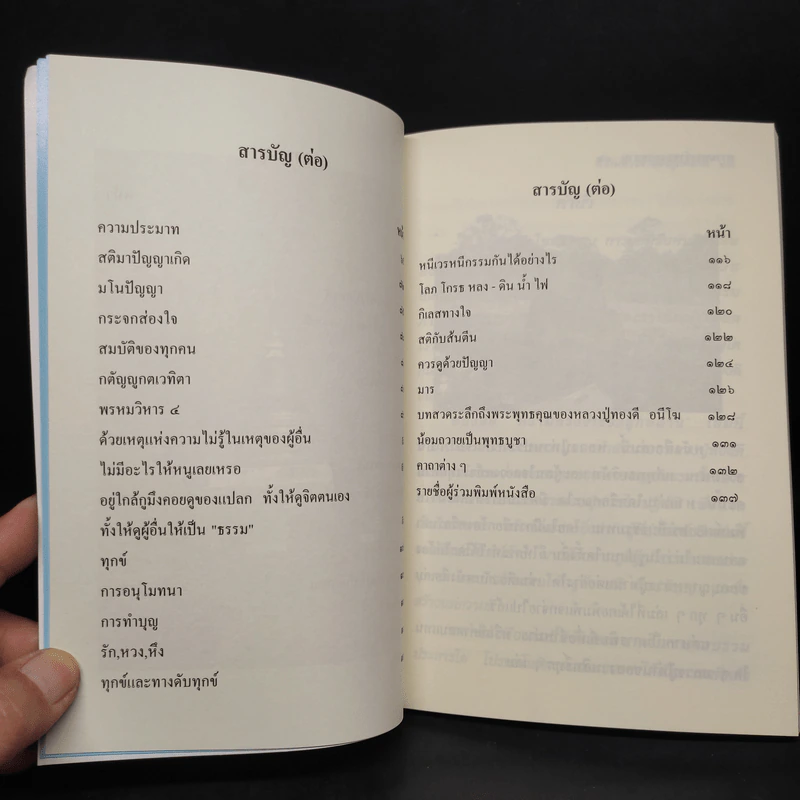 สารบัญ (ต่อ)
ความประมาท
สติมาปัญญาเกิด
มโนปัญญา
กระจกส่องใจ
สมบัติของทุกคน
กตัญญูกตเวทิตา
พรหมวิหาร ๔
ด้วยเหตุแห่งความไม่รู้ในเหตุของผู้อื่น
ไม่มีอะไรให้หนูเลยเหรอ
อยู่ใกล้กูมึงคอยดูของแปลก ทั้งให้ดูจิตตนเอง
ทั้งให้ดูผู้อื่นให้เป็น "ธรรม"
ทุกข์
การอนุโมทนา
การทำบุญ
รัก,หวง,หึง
ทุกข์และทางดับทุกข์
สารบัญ (ต่อ)
หน้า
หนีเวรหนีกรรมกันได้อย่างไร ๑๑๖
โลภ โกรธ หลง - ดิน น้ำ ไฟ ๑๑๘
กิเลสทางใจ ๑๒๐
สติกับส้นตีน ๑๒๒
ควรดูด้วยปัญญา ๑๒๔
มาร ๑๒๖
บทสวดระลึกถึงพระพุทธคุณของหลวงปู่ทองดี อนีโฆ ๑๒๘
น้อมถวายเป็นพุทธบูชา ๑๓๑
คาถาต่าง ๆ ๑๓๒
รายชื่อผู้ร่วมพิมพ์หนังสือ ๑๓๗